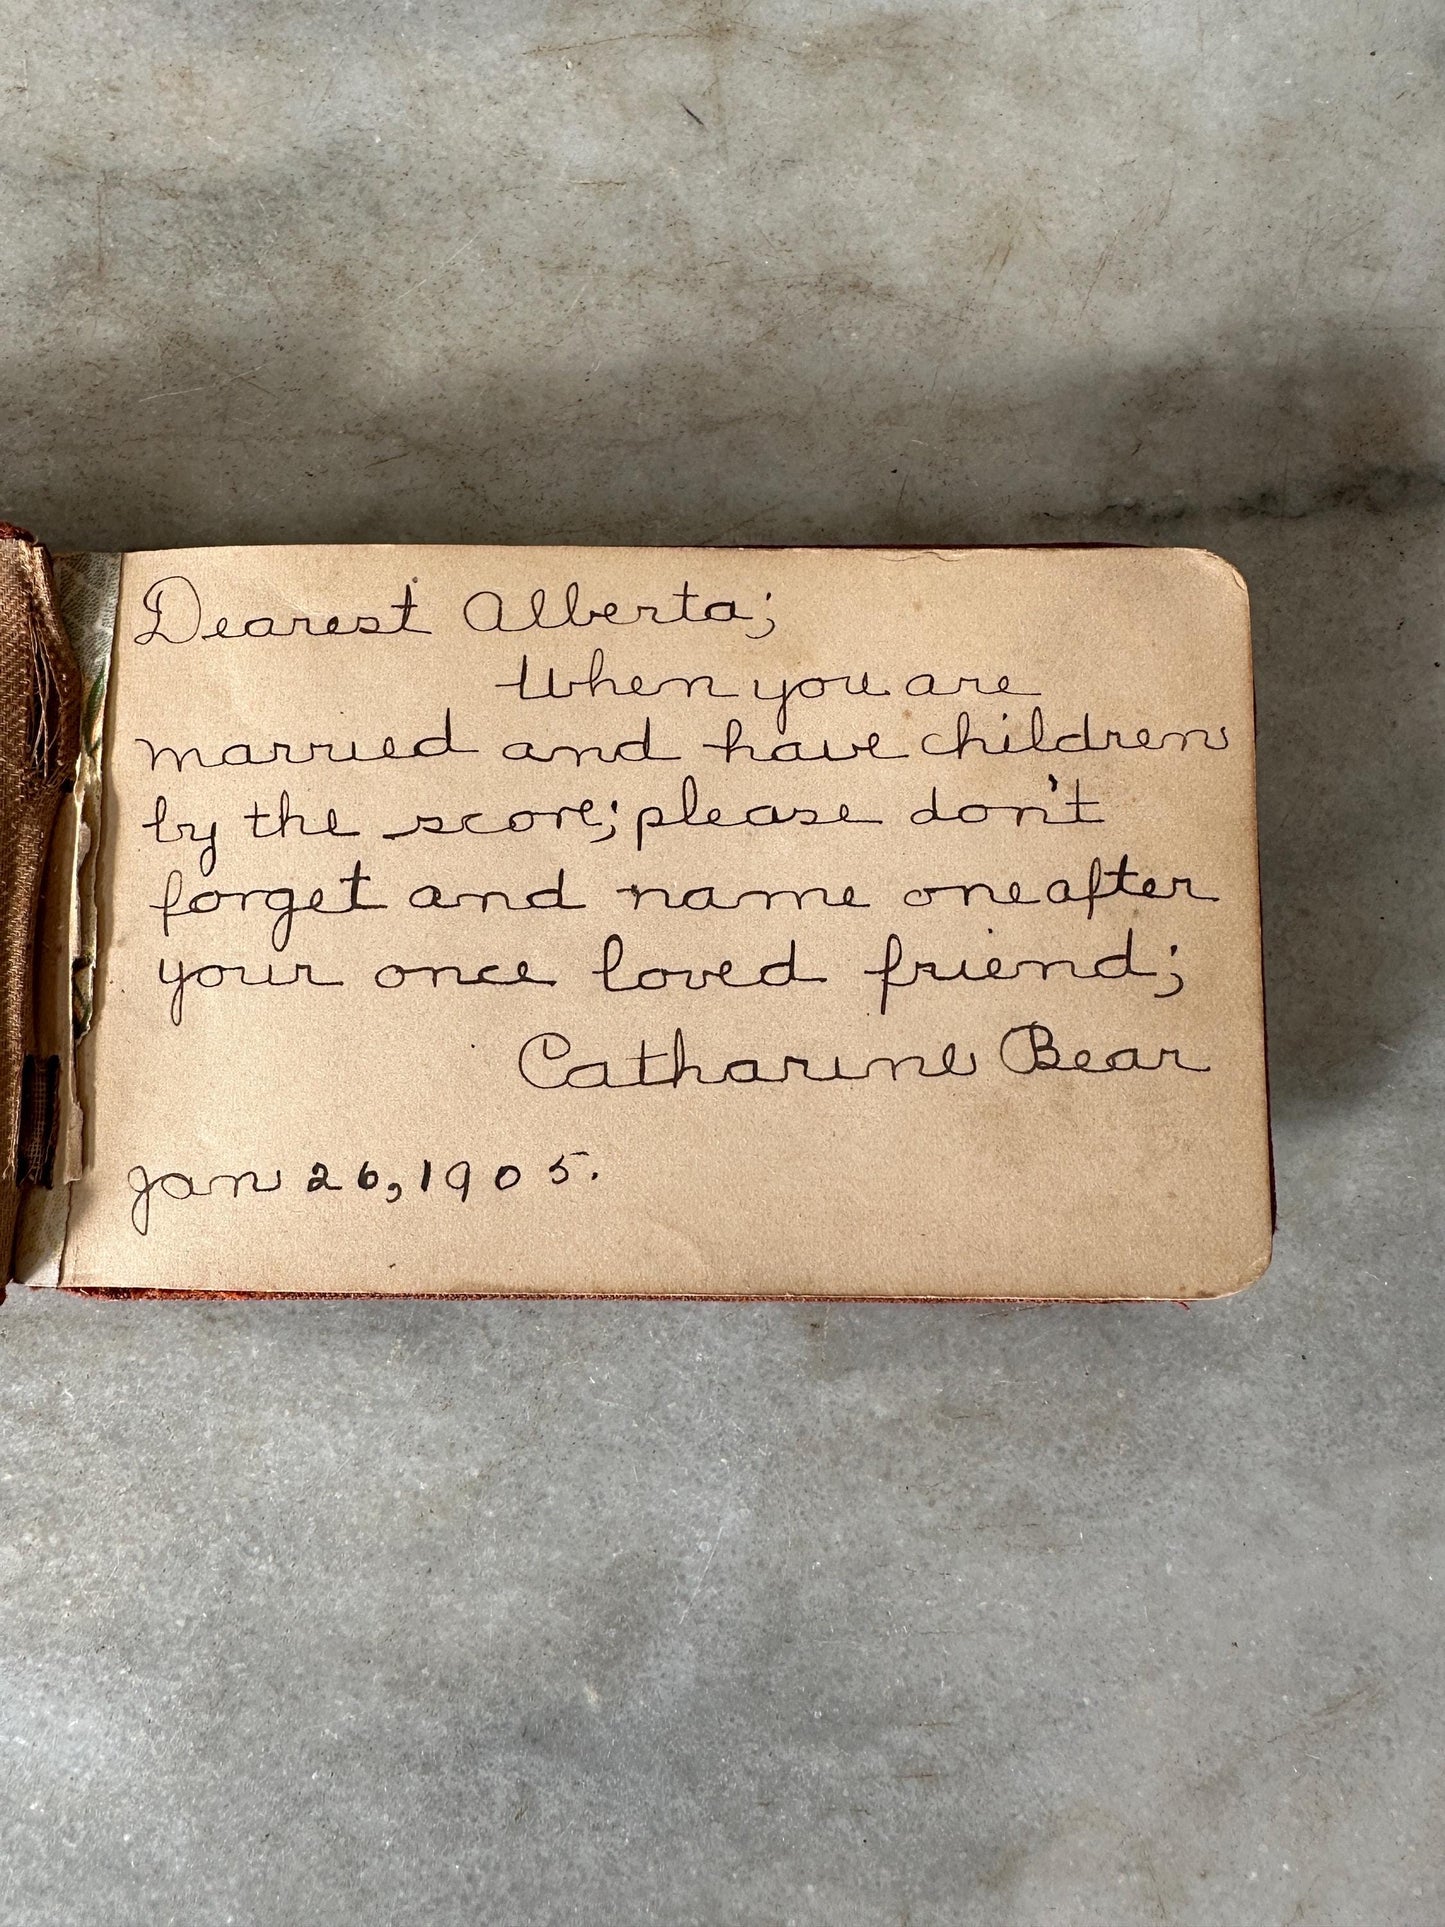 Dearest Alberta;
When you are
married and have children
by the score; please don't
forget and name one after
your once loved friend;
Catharine Bear
Jan 26, 1905.